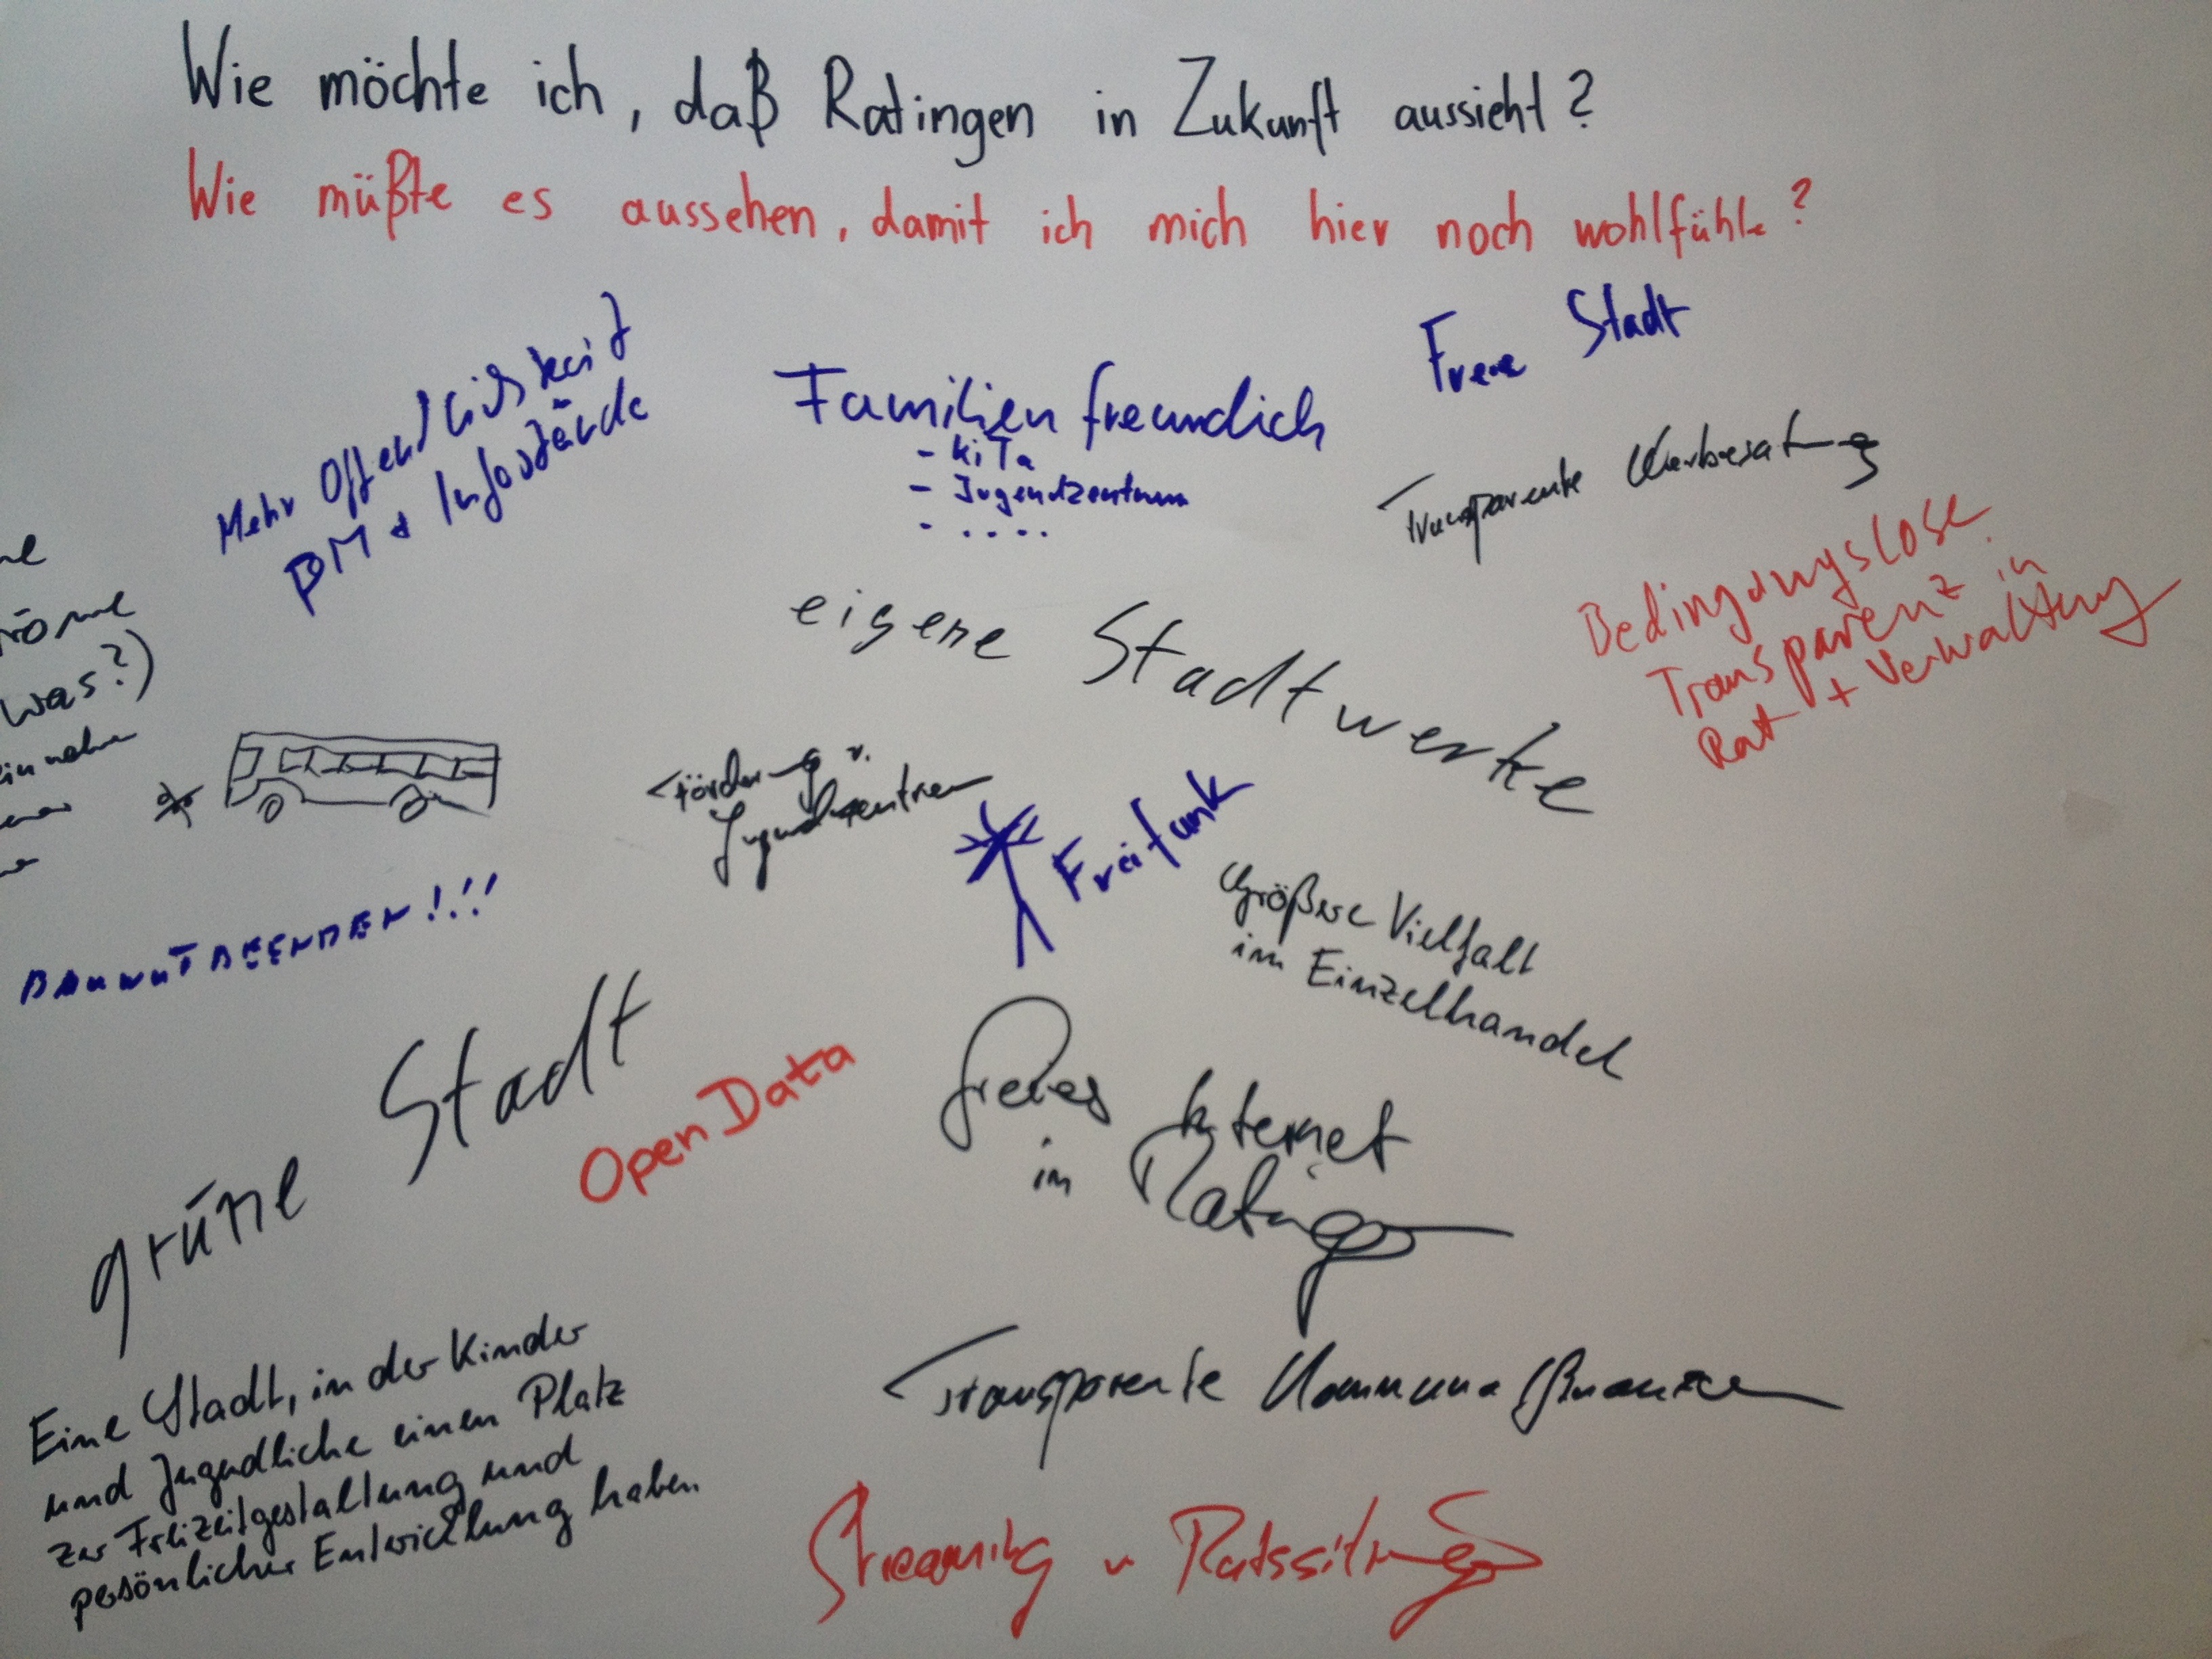 Wie möchte ich, daß Ratingen in Zukunft aussieht?
Wie müßte es aussehen, damit ich mich hier noch wohlfühle?
Mehr Öffentlichkeit
PM + Infostände
Familienfreundlich
- KiTa
- Jugendzentrum
- ....
Freie Stadt
Transparente
Bedingungslose
Transparenz in
Rat + Verwaltung
eigene Stadtwerke
was?)
Förderung v.
Jugendzentren
Freifunk
Größere Vielfalt
im Einzelhandel
BAUWUT BEENDEN!!!
grüne Stadt
OpenData
freies Internet
in Ratingen
Eine Stadt, in der Kinder
und Jugendliche einen Platz
zur Freizeitgestaltung und
persönlicher Entwicklung haben
Transparente Kommunalfinanzen
Streaming v Ratssitzungen